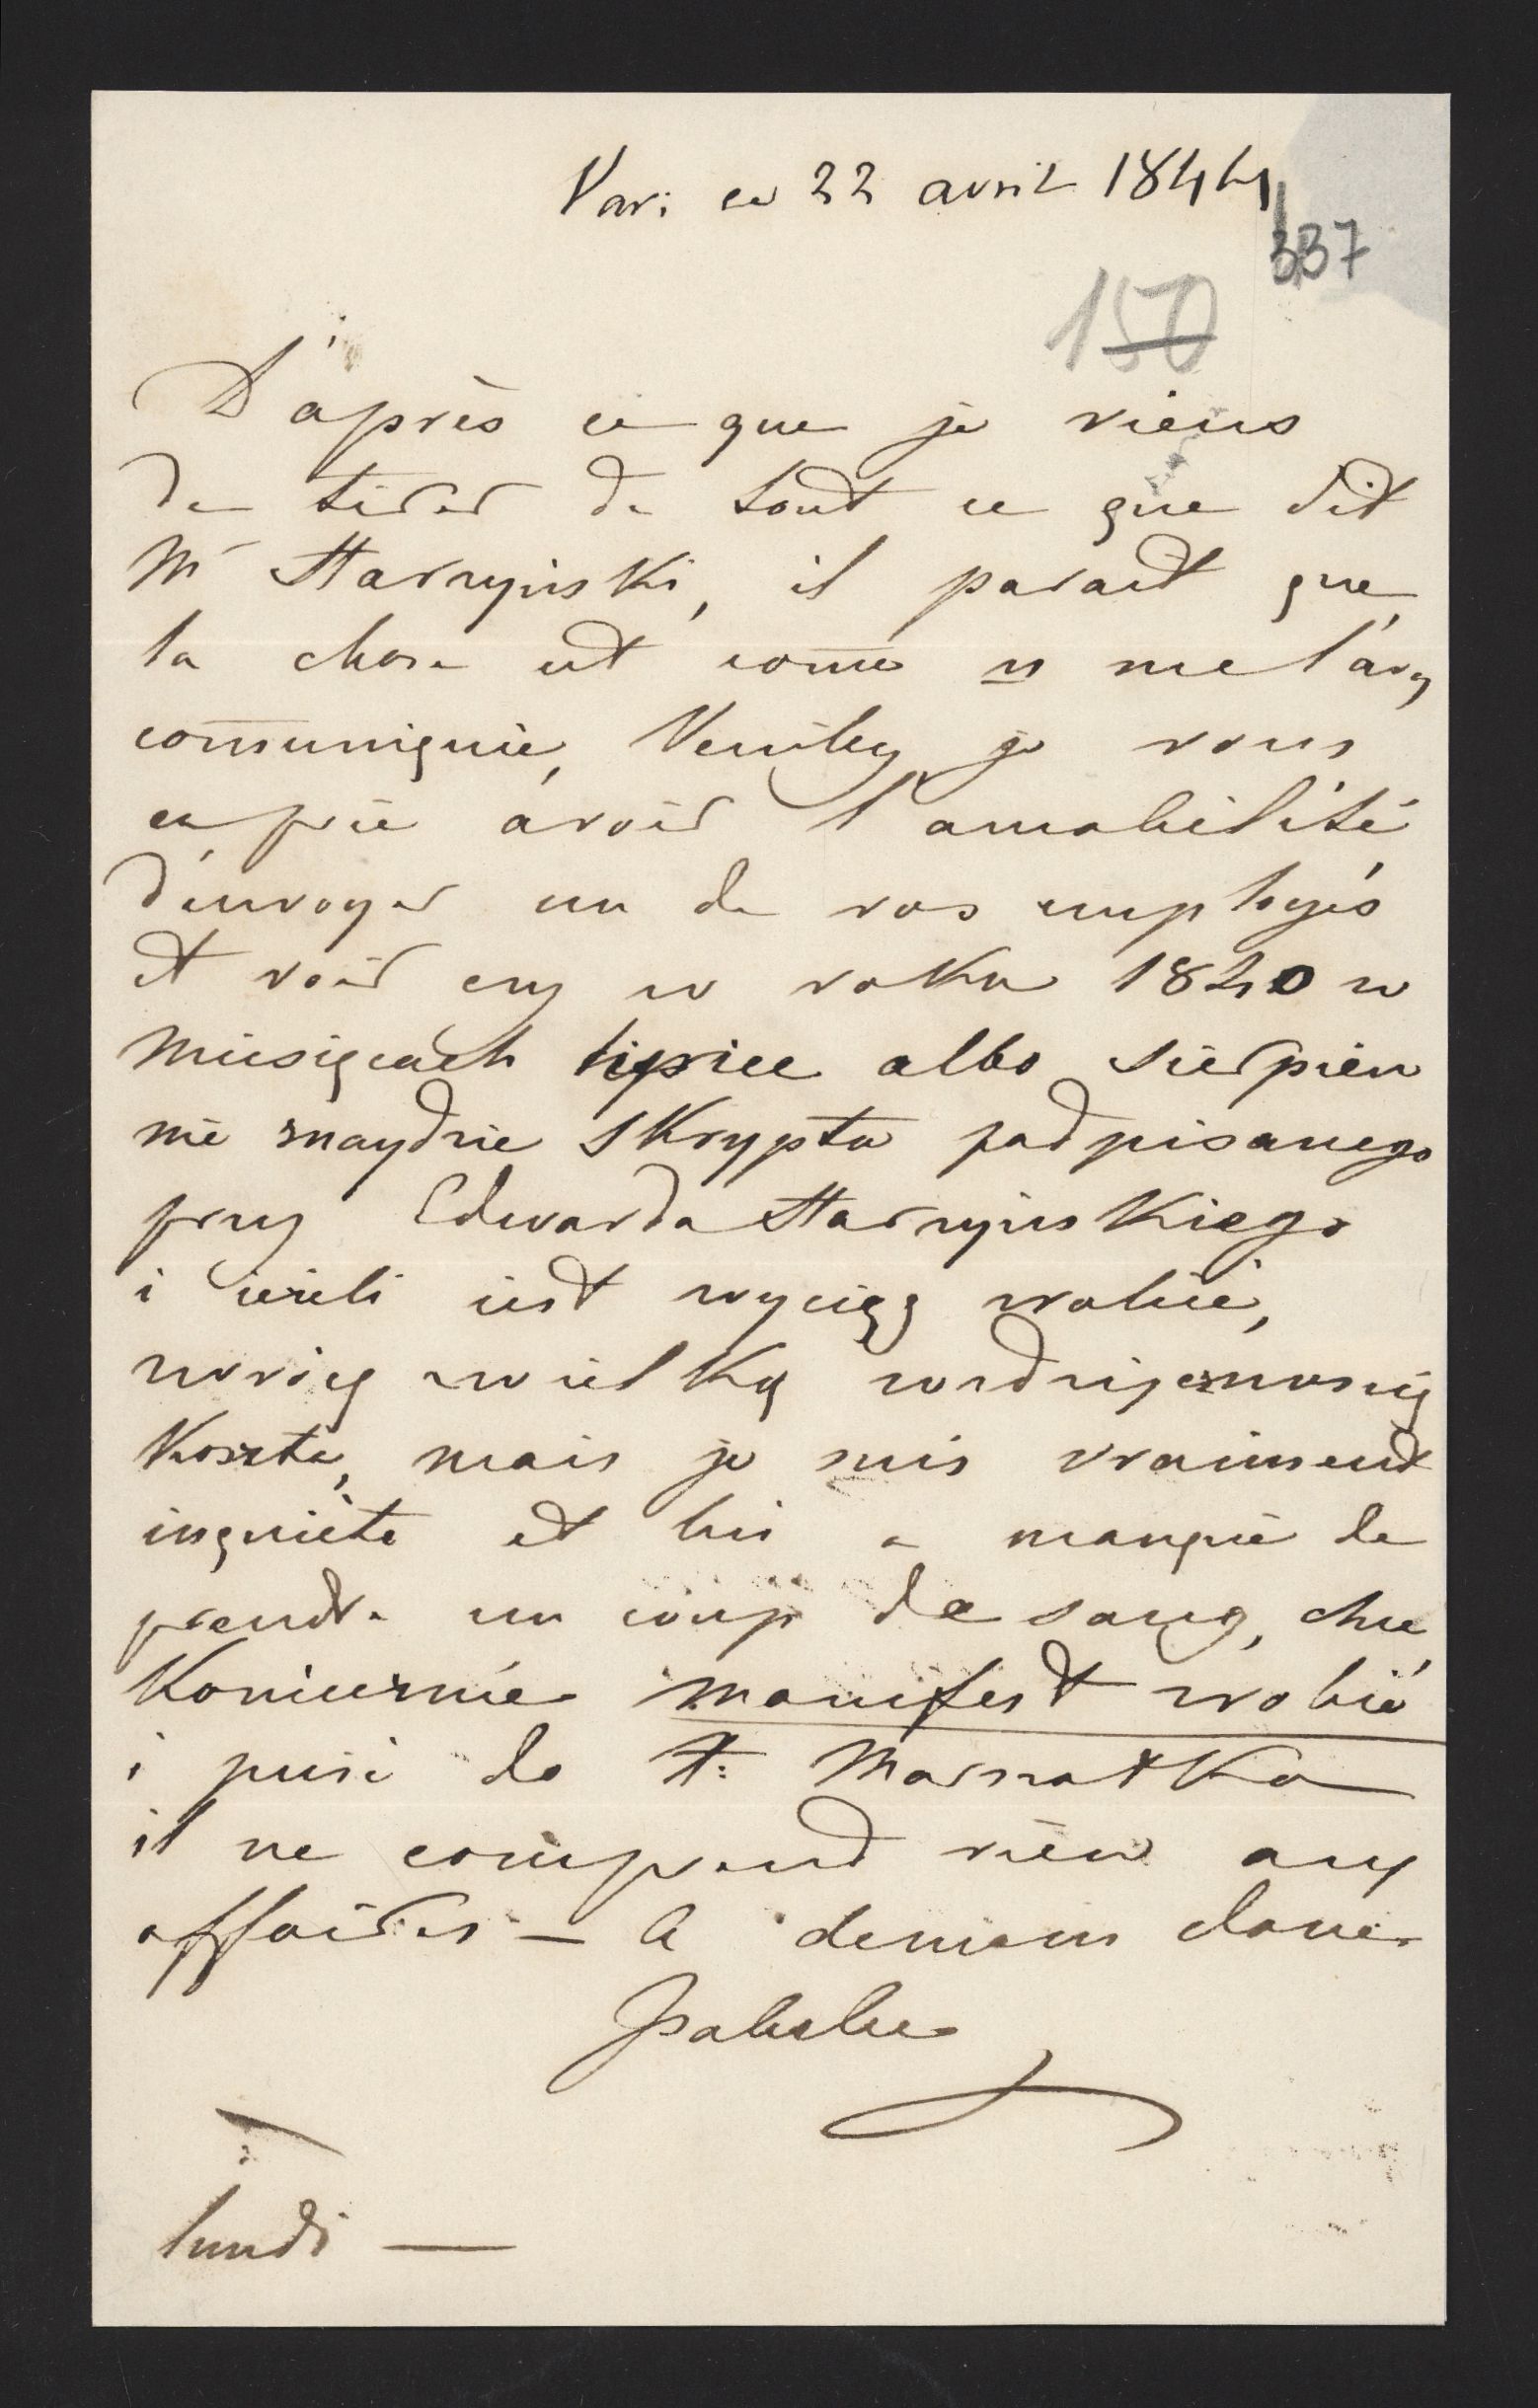 Vars: ce 22 avril 1844
337
150
D'après ce que je viens
de tirer de tout ce que dit
Mr Starzyński, il parait que
la chose est come
comuniquée, Veuillez je vous
en prie avoir l'amabilité
d'envoyer un de vos employés
et voir czy w roku 1840 w
Miesiącach lipiec albo sierpien
nie znaydzie skryptu podpisanego
przez Edwarda Starzyńskiego
i jezeli iest wyciąg zrobić,
zwrócę z wielką wdzięcznością
Koszta, mais je suis vraiment
inquiète et lui a manqué de
prendre un coup de sang, chce
Koniecznie manifest zrobić
i pisze do
il ne comprend rien aux
affaires — A demain donc
lundi —